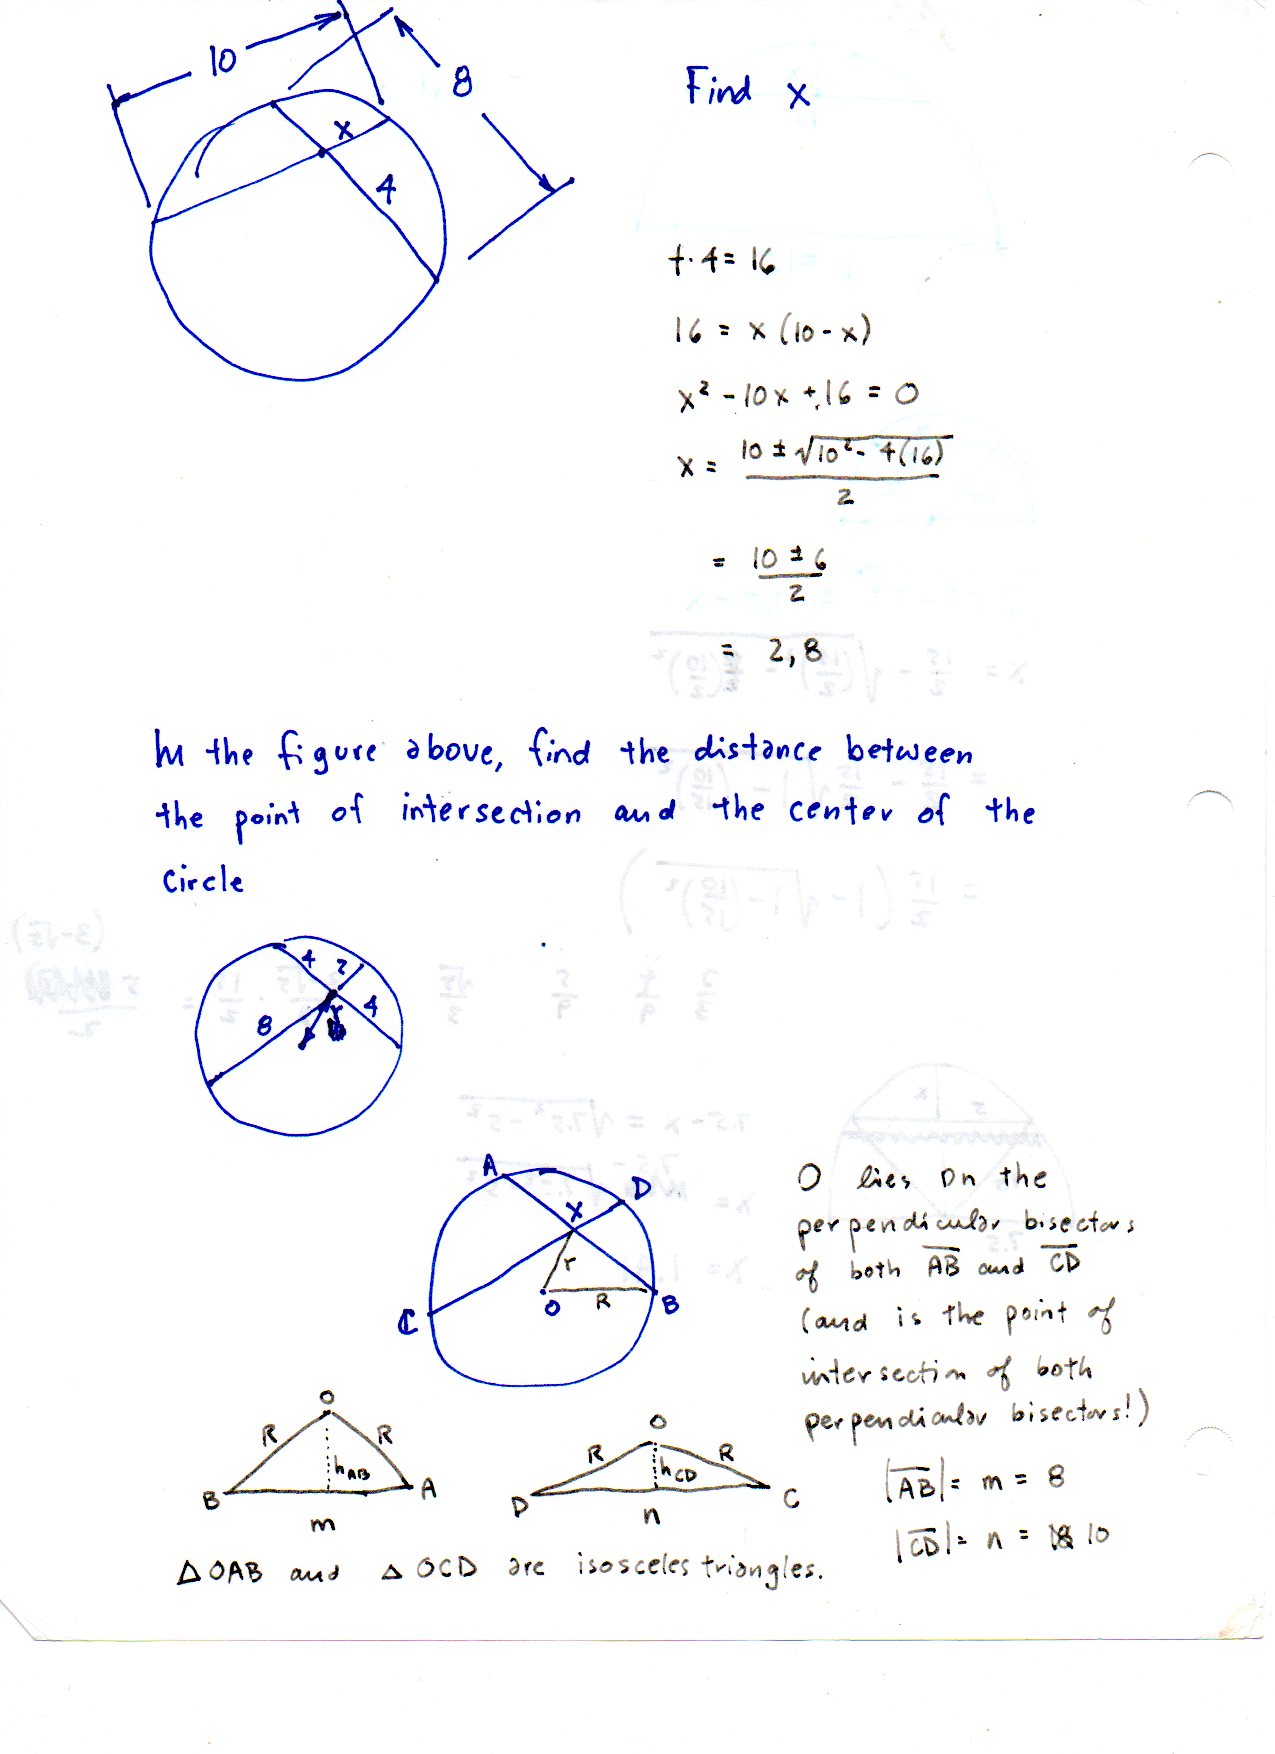 10
8
Find x
x
4
4·4 = 16
16 = x (10 - x)
x² - 10x + 16 = 0
x = 10 ± √10² - 4(16)
2
= 10 ± 6
2
= 2, 8
In the figure above, find the distance between
the point of intersection and the center of the
circle
4 2
8 r 4
A D
X
r
O R B
C
O lies on the
perpendicular bisectors
of both AB and CD
(and is the point of
intersection of both
perpendicular bisectors!)
O
R R
hAB
B A
m
O
R R
hCD
D C
n
|AB| = m = 8
|CD| = n = 10
△OAB and △OCD are isosceles triangles.